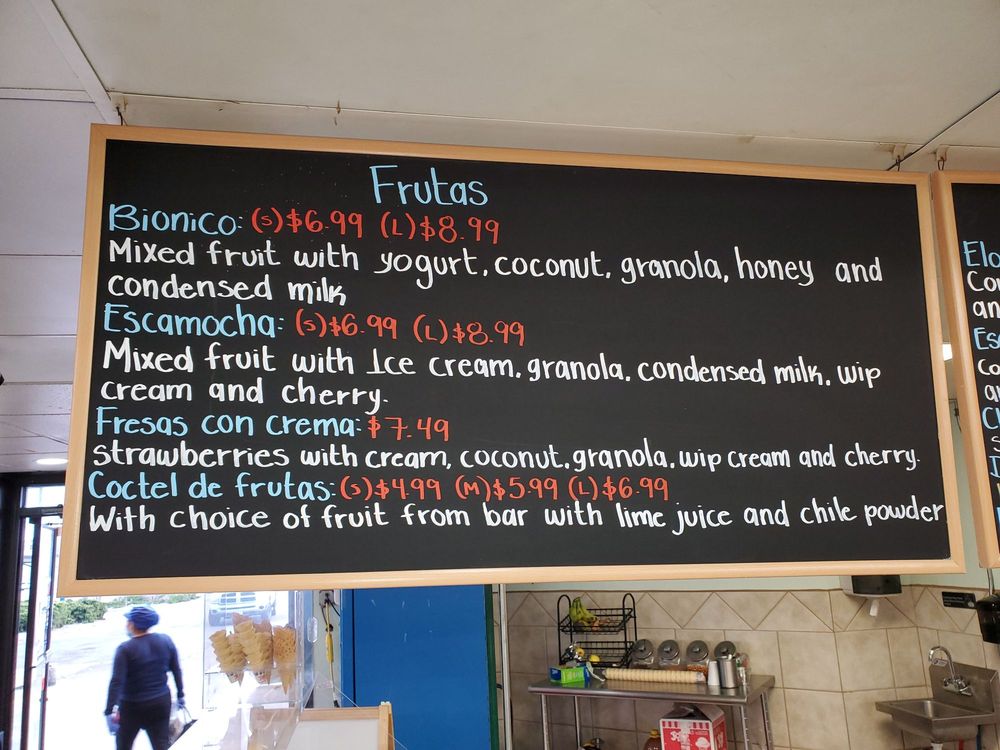 Frutas
Bionico: (s)$6.99 (L)$8.99
Mixed fruit with yogurt, coconut, granola, honey and
condensed milk
Escamocha: (s)$6.99 (L)$8.99
Mixed fruit with Ice cream, granola, condensed milk, wip
cream and cherry.
Fresas con crema: $7.49
strawberries with cream, coconut, granola, wip cream and cherry.
Coctel de frutas: (s)$4.99 (M)$5.99 (L)$6.99
With choice of fruit from bar with lime juice and chile powder